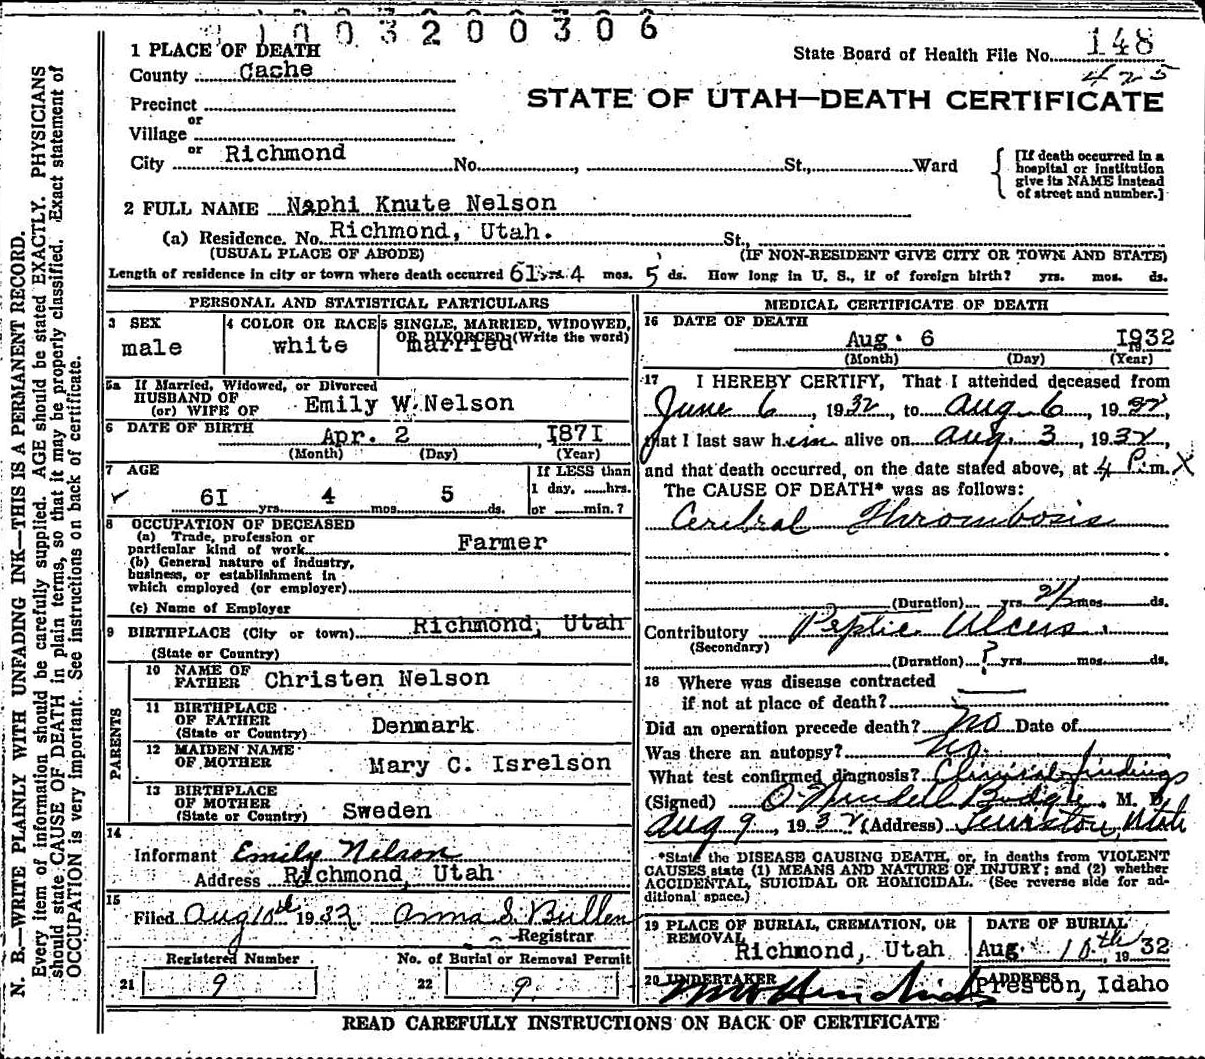 1003200306
1 PLACE OF DEATH
State Board of Health File No. 148
County Cache
425
Precinct
STATE OF UTAH—DEATH CERTIFICATE
or
Village
or
City Richmond No. , St., Ward
[If death occurred in a
hospital or institution
give its NAME instead
of street and number.]
2 FULL NAME Naphi Knute Nelson
(a) Residence. No. Richmond, Utah. St.,
(USUAL PLACE OF ABODE) (IF NON-RESIDENT GIVE CITY OR TOWN AND STATE)
Length of residence in city or town where death occurred 61 yrs. 4 mos. 5 ds. How long in U. S., if of foreign birth? yrs. mos. ds.
PERSONAL AND STATISTICAL PARTICULARS
3 SEX
male
4 COLOR OR RACE
white
5 SINGLE, MARRIED, WIDOWED,
OR DIVORCED (Write the word)
married
5a If Married, Widowed, or Divorced
HUSBAND OF
(or) WIFE OF Emily W. Nelson
6 DATE OF BIRTH Apr. 2 , 1871
(Month) (Day) (Year)
7 AGE
61 yrs. 4 mos. 5 ds.
If LESS than
1 day, hrs.
or min.?
8 OCCUPATION OF DECEASED
(a) Trade, profession or
particular kind of work Farmer
(b) General nature of industry,
business, or establishment in
which employed (or employer)
(c) Name of Employer
9 BIRTHPLACE (City or town) Richmond, Utah
(State or Country)
PARENTS
10 NAME OF
FATHER Christen Nelson
11 BIRTHPLACE
OF FATHER
(State or Country) Denmark
12 MAIDEN NAME
OF MOTHER Mary C. Isrelson
13 BIRTHPLACE
OF MOTHER
(State or Country) Sweden
14
Informant Emily Nelson
Address Richmond, Utah
15
Filed Aug 10th 1932 Anna S. Bullen
Registrar
Registered Number No. of Burial or Removal Permit
21 9 22 9
MEDICAL CERTIFICATE OF DEATH
16 DATE OF DEATH
Aug. 6 1932
(Month) (Day) (Year)
17 I HEREBY CERTIFY, That I attended deceased from
June 6, 1932, to Aug. 6, 1932,
that I last saw him alive on Aug. 3, 1932,
and that death occurred, on the date stated above, at 4 P. m. X
The CAUSE OF DEATH* was as follows:
Cerebral Thrombosis
(Duration) yrs. 2 1/2 mos. ds.
Contributory Peptic Ulcers
(Secondary)
(Duration) ? yrs. mos. ds.
18 Where was disease contracted
if not at place of death?
Did an operation precede death? No Date of
Was there an autopsy? No.
What test confirmed diagnosis? Clinical findings
(Signed) O. Budge, M. D.
Aug 9, 1932 (Address) Lewiston, Utah
*State the DISEASE CAUSING DEATH, or, in deaths from VIOLENT
CAUSES, state (1) MEANS AND NATURE OF INJURY; and (2) whether
ACCIDENTAL, SUICIDAL OR HOMICIDAL. (See reverse side for ad-
ditional space.)
19 PLACE OF BURIAL, CREMATION, OR
REMOVAL
Richmond, Utah
DATE OF BURIAL
Aug. 10th, 1932
20 UNDERTAKER
ADDRESS
Preston, Idaho
READ CAREFULLY INSTRUCTIONS ON BACK OF CERTIFICATE
N. B.—WRITE PLAINLY WITH UNFADING INK—THIS IS A PERMANENT RECORD.
Every item of information should be carefully supplied. AGE should be stated EXACTLY. PHYSICIANS
should state CAUSE OF DEATH in plain terms, so that it may be properly classified. Exact statement of
OCCUPATION is very important. See instructions on back of certificate.